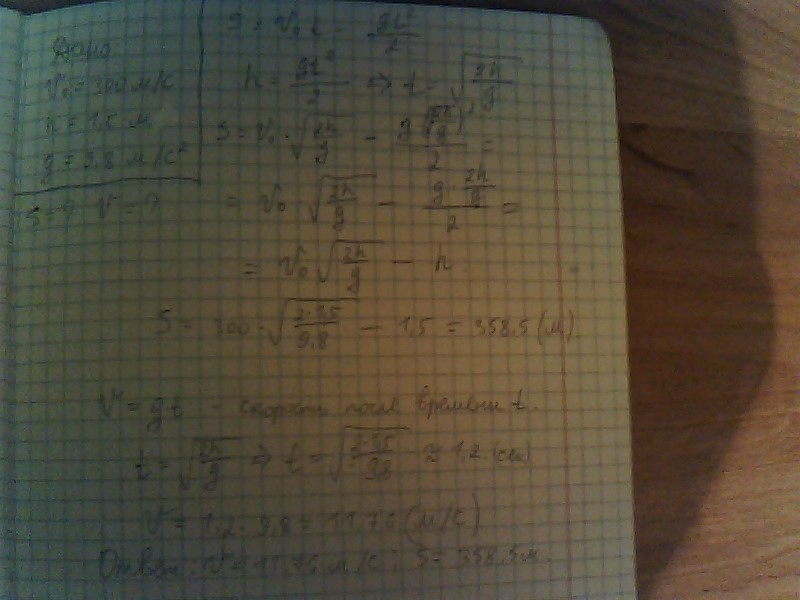 Дано
v₀ = 300 м/с
h = 1,5 м
g = 9,8 м/с²
S = ? v = ?
S = v₀t − gt²/2
h = gt²/2 ⇒ t = √(2h/g)
S = v₀ · √(2h/g) − g(√(2h/g))²/2 =
= v₀ · √(2h/g) − (g · 2h/g)/2 =
= v₀ √(2h/g) − h
S = 300 · √(2·1,5/9,8) − 1,5 = 358,5 (м).
v = gt - скорость после времени t.
t = √(2h/g) ⇒ t = √(2·1,5/9,8) ≈ 1,2 (сек)
v = 1,2 · 9,8 = 11,76 (м/с)
Ответ: v = 11,76 м/с; S = 358,5 м.